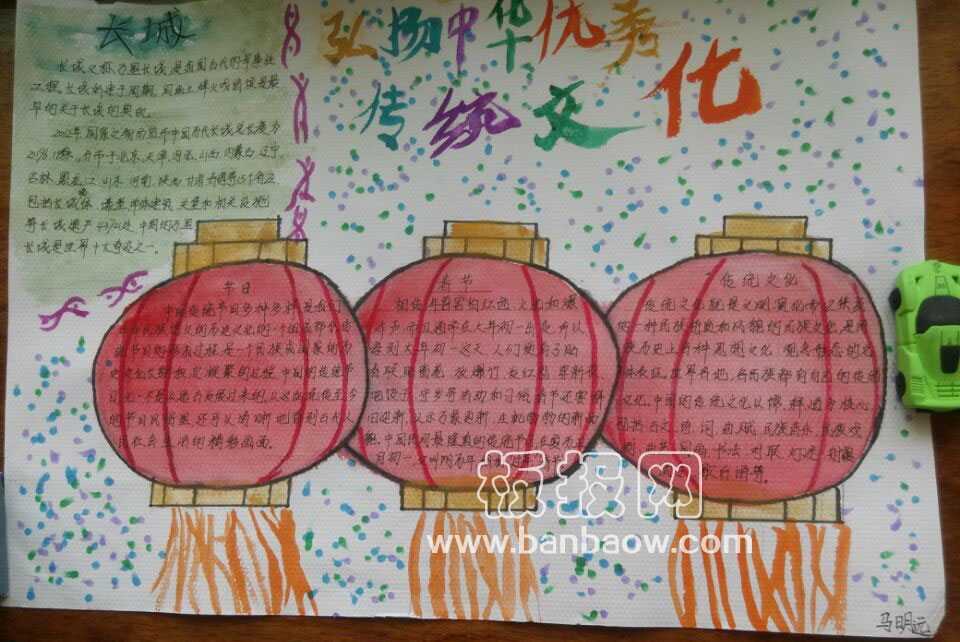 长城
弘扬中华优秀
传统文化
长城又称万里长城,是我国古代的军事性
工程。长城始建于周期,周幽王烽火戏诸侯是最
早的关于长城的典故。
2012年,国家文物局宣布中国历代长城总长度为
分布于北京、天津、河北、山西、内蒙古、辽宁、
吉林、黑龙江、山东、河南、陕西、甘肃
包括长城
等长城遗产43721处,中国的万里
长城是世界十大奇迹之一。
节日
中国传统节日多种多样,是我们
中华民族悠久的历史文化的一个组成部分,传
统节日的形成过程,是一个民族或国家的历
史文化长期积淀凝聚的过程,中国的传统节
日,无一不是从远古发展过来的,从这些流传至今
的节日风俗里,还可以清晰地看到古代人
民社会生活的精彩画面。
春节
相传年兽害怕红色、火光和爆
炸声,而且通常在大年初一出没,所以
每到大年初一这天,人们便有了贴
春联、放爆竹、发红包、穿新衣、
吃饺子、守岁等活动和习俗,春节还寓意辞
旧迎新,以示万象更新,生机勃勃的新面
貌,中国民间最隆重的传统节日
传统文化
传统文化就是文明演化而汇集成
的一种民族特质和风貌的民族文化,是民
族历史上各种思想文化、观念形态的总
体表征。世界各地,各民族都有自己的传统
文化,中国的传统文化以儒、释、道为核心,
包括:古文、诗、词、曲、赋、民族音乐、民族戏
剧、曲艺、国画、书法、对联、灯谜、射覆、
歇后语等。
板报网
www.banbaow.com
马明远